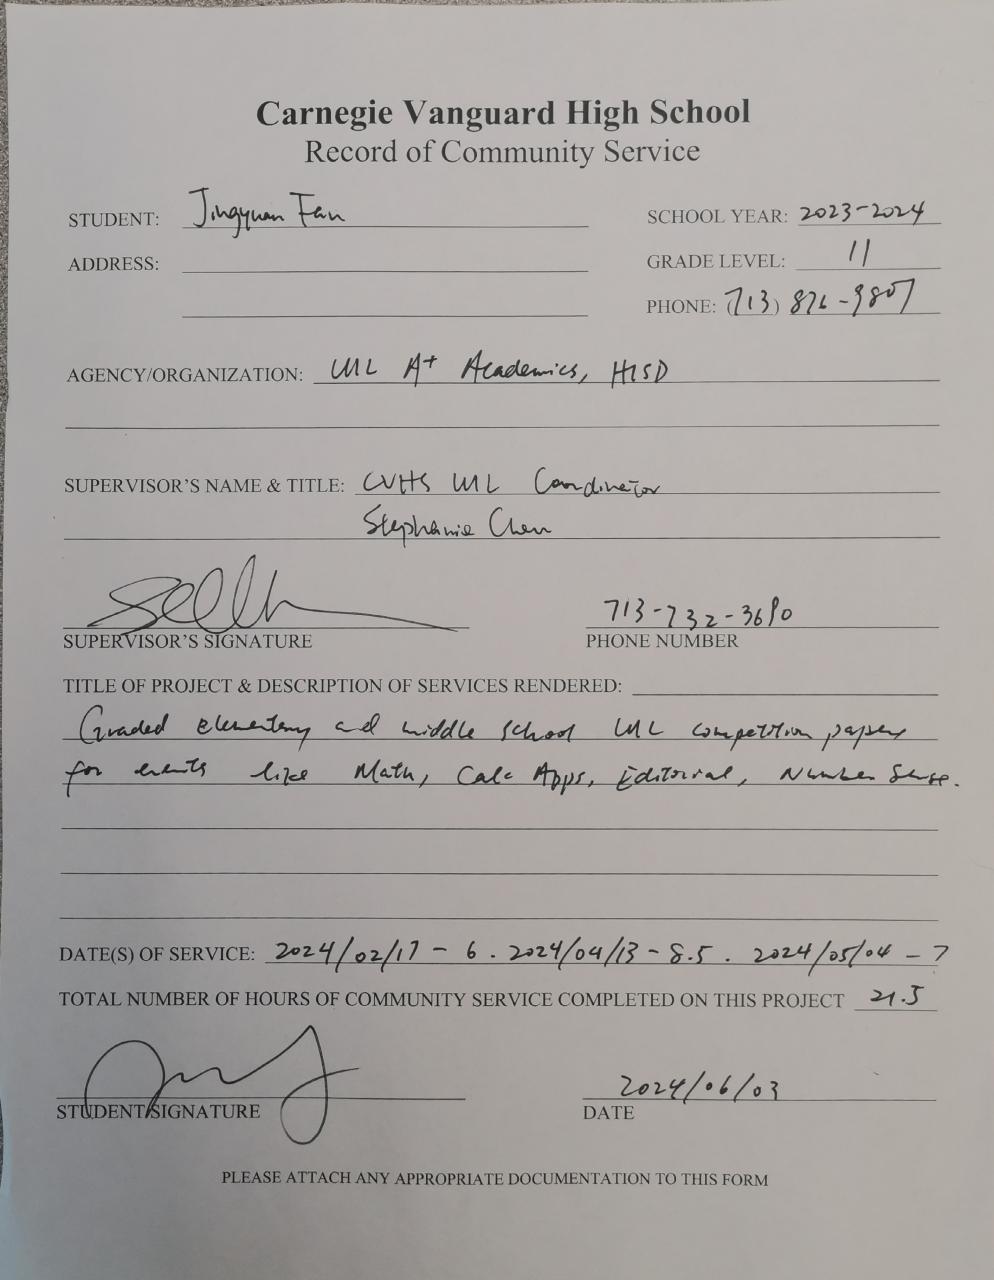 Carnegie Vanguard High School
Record of Community Service
STUDENT: Jingyuan Fan
SCHOOL YEAR: 2023-2024
ADDRESS:
GRADE LEVEL: 11
PHONE: (713) 876-9807
AGENCY/ORGANIZATION: UIL A+ Academics, HISD
SUPERVISOR'S NAME & TITLE: CVHS UIL Coordinator
Stephanie Chen
713-732-3690
SUPERVISOR'S SIGNATURE
PHONE NUMBER
TITLE OF PROJECT & DESCRIPTION OF SERVICES RENDERED:
Graded elementary and middle school UIL competition papers
for events like Math, Calc Apps, Editorial, Number Sense.
DATE(S) OF SERVICE: 2024/02/17 - 6 . 2024/04/13 - 8.5 . 2024/05/04 - 7
TOTAL NUMBER OF HOURS OF COMMUNITY SERVICE COMPLETED ON THIS PROJECT 21.5
2024/06/03
STUDENT SIGNATURE
DATE
PLEASE ATTACH ANY APPROPRIATE DOCUMENTATION TO THIS FORM